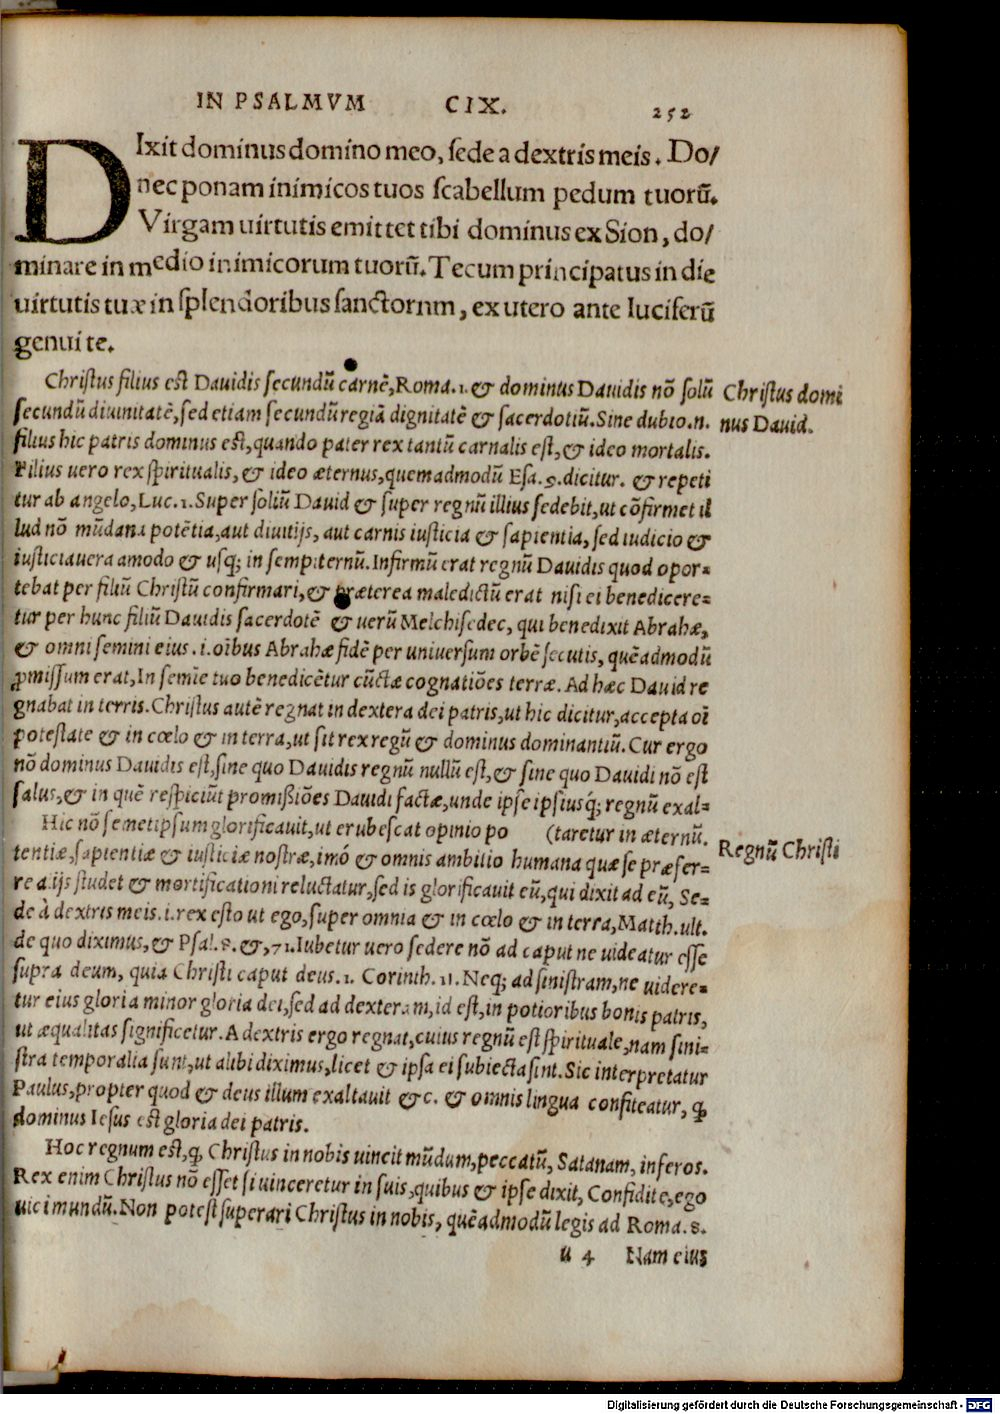 IN PSALMVM CIX. 252
DIxit dominus domino meo, sede a dextris meis. Do/
nec ponam inimicos tuos scabellum pedum tuorũ.
Virgam uirtutis emittet tibi dominus ex Sion, do/
minare in medio inimicorum tuorũ. Tecum principatus in die
uirtutis tuæ in splendoribus sanctorum, ex utero ante luciferũ
genui te.
Christus filius est Dauidis secundũ carnẽ, Roma. 1. & dominus Dauidis nõ solũ
Christus domi
secundũ diuinitatẽ, sed etiam secundũ regiã dignitatẽ & sacerdotiũ. Sine dubio. n.
nus Dauid.
filius hic patris dominus est, quando pater rex tantũ carnalis est, & ideo mortalis.
Filius uero rex spiritualis, & ideo æternus, quemadmodũ Esa. 9. dicitur. & repeti
tur ab angelo, Luc. 1. Super soliũ Dauid & super regnũ illius sedebit, ut cõfirmet il
lud nõ mũdana potẽtia, aut diuitijs, aut carnis iusticia & sapientia, sed iudicio &
iusticia uera amodo & usq; in sempiternũ. Infirmũ erat regnũ Dauidis quod opor-
tebat per filiũ Christũ confirmari, & præterea maledictũ erat nisi ei benedicere-
tur per hunc filiũ Dauidis sacerdotẽ & uerũ Melchisedec, qui benedixit Abrahæ,
& omni semini eius. i. oĩbus Abrahæ fidẽ per uniuersum orbẽ secutis, quẽadmodũ
ꝓmissum erat, In semĩe tuo benedicẽtur cũctæ cognatiões terræ. Ad hæc Dauid re
gnabat in terris. Christus autẽ regnat in dextera dei patris, ut hic dicitur, accepta oĩ
potestate & in cœlo & in terra, ut sit rex regũ & dominus dominantiũ. Cur ergo
nõ dominus Dauidis est, sine quo Dauidis regnũ nullũ est, & sine quo Dauidi nõ est
salus, & in quẽ respiciũt promißiões Dauidi factæ, unde ipse ipsiusq; regnũ exal-
Hic nõ semetipsum glorificauit, ut erubescat opinio po (taretur in æternũ.
Regnũ Christi
tentiæ, sapientiæ & iusticiæ nostræ, imó & omnis ambitio humana quæ se præfer-
re alijs studet & mortificationi reluctatur, sed is glorificauit eũ, qui dixit ad eũ, Se-
de à dextris meis. i. rex esto ut ego, super omnia & in cœlo & in terra, Matth. ult.
de quo diximus, & Psal. 8. &, 71. Iubetur uero sedere nõ ad caput ne uideatur esse
supra deum, quia Christi caput deus. 1. Corinth. 11. Neq; ad sinistram, ne uidere-
tur eius gloria minor gloria dei, sed ad dexteram, id est, in potioribus bonis patris,
ut æqualitas significetur. A dextris ergo regnat, cuius regnũ est spirituale, nam sini-
stra temporalia sunt, ut alibi diximus, licet & ipsa ei subiecta sint. Sic interpretatur
Paulus, propter quod & deus illum exaltauit &c. & omnis lingua confiteatur, ꝙ
dominus Iesus est gloria dei patris.
Hoc regnum est, ꝙ Christus in nobis uincit mũdum, peccatũ, Satanam, inferos.
Rex enim Christus nõ esset si uinceretur in suis, quibus & ipse dixit, Confidite, ego
uici mundũ. Non potest superari Christus in nobis, quẽadmodũ legis ad Roma. 8.
u 4 Nam eius
Digitalisierung gefördert durch die Deutsche Forschungsgemeinschaft - DFG